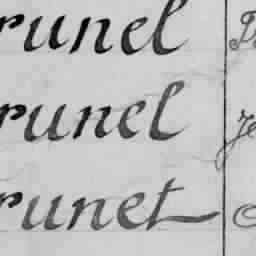 runel
runel
runet